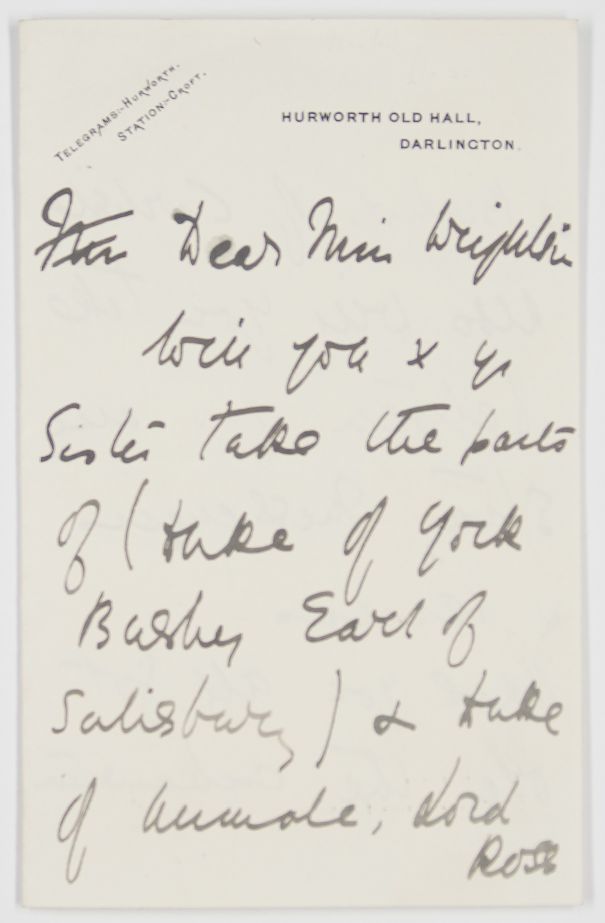 TELEGRAMS:-HURWORTH.
STATION:-CROFT.
HURWORTH OLD HALL,
DARLINGTON.
Dear Miss Weighton
Will you & yr
Sister take the parts
of (Duke of York
Bushey Earl of
Salisbury) & Duke
of Aumale, Lord
Ross